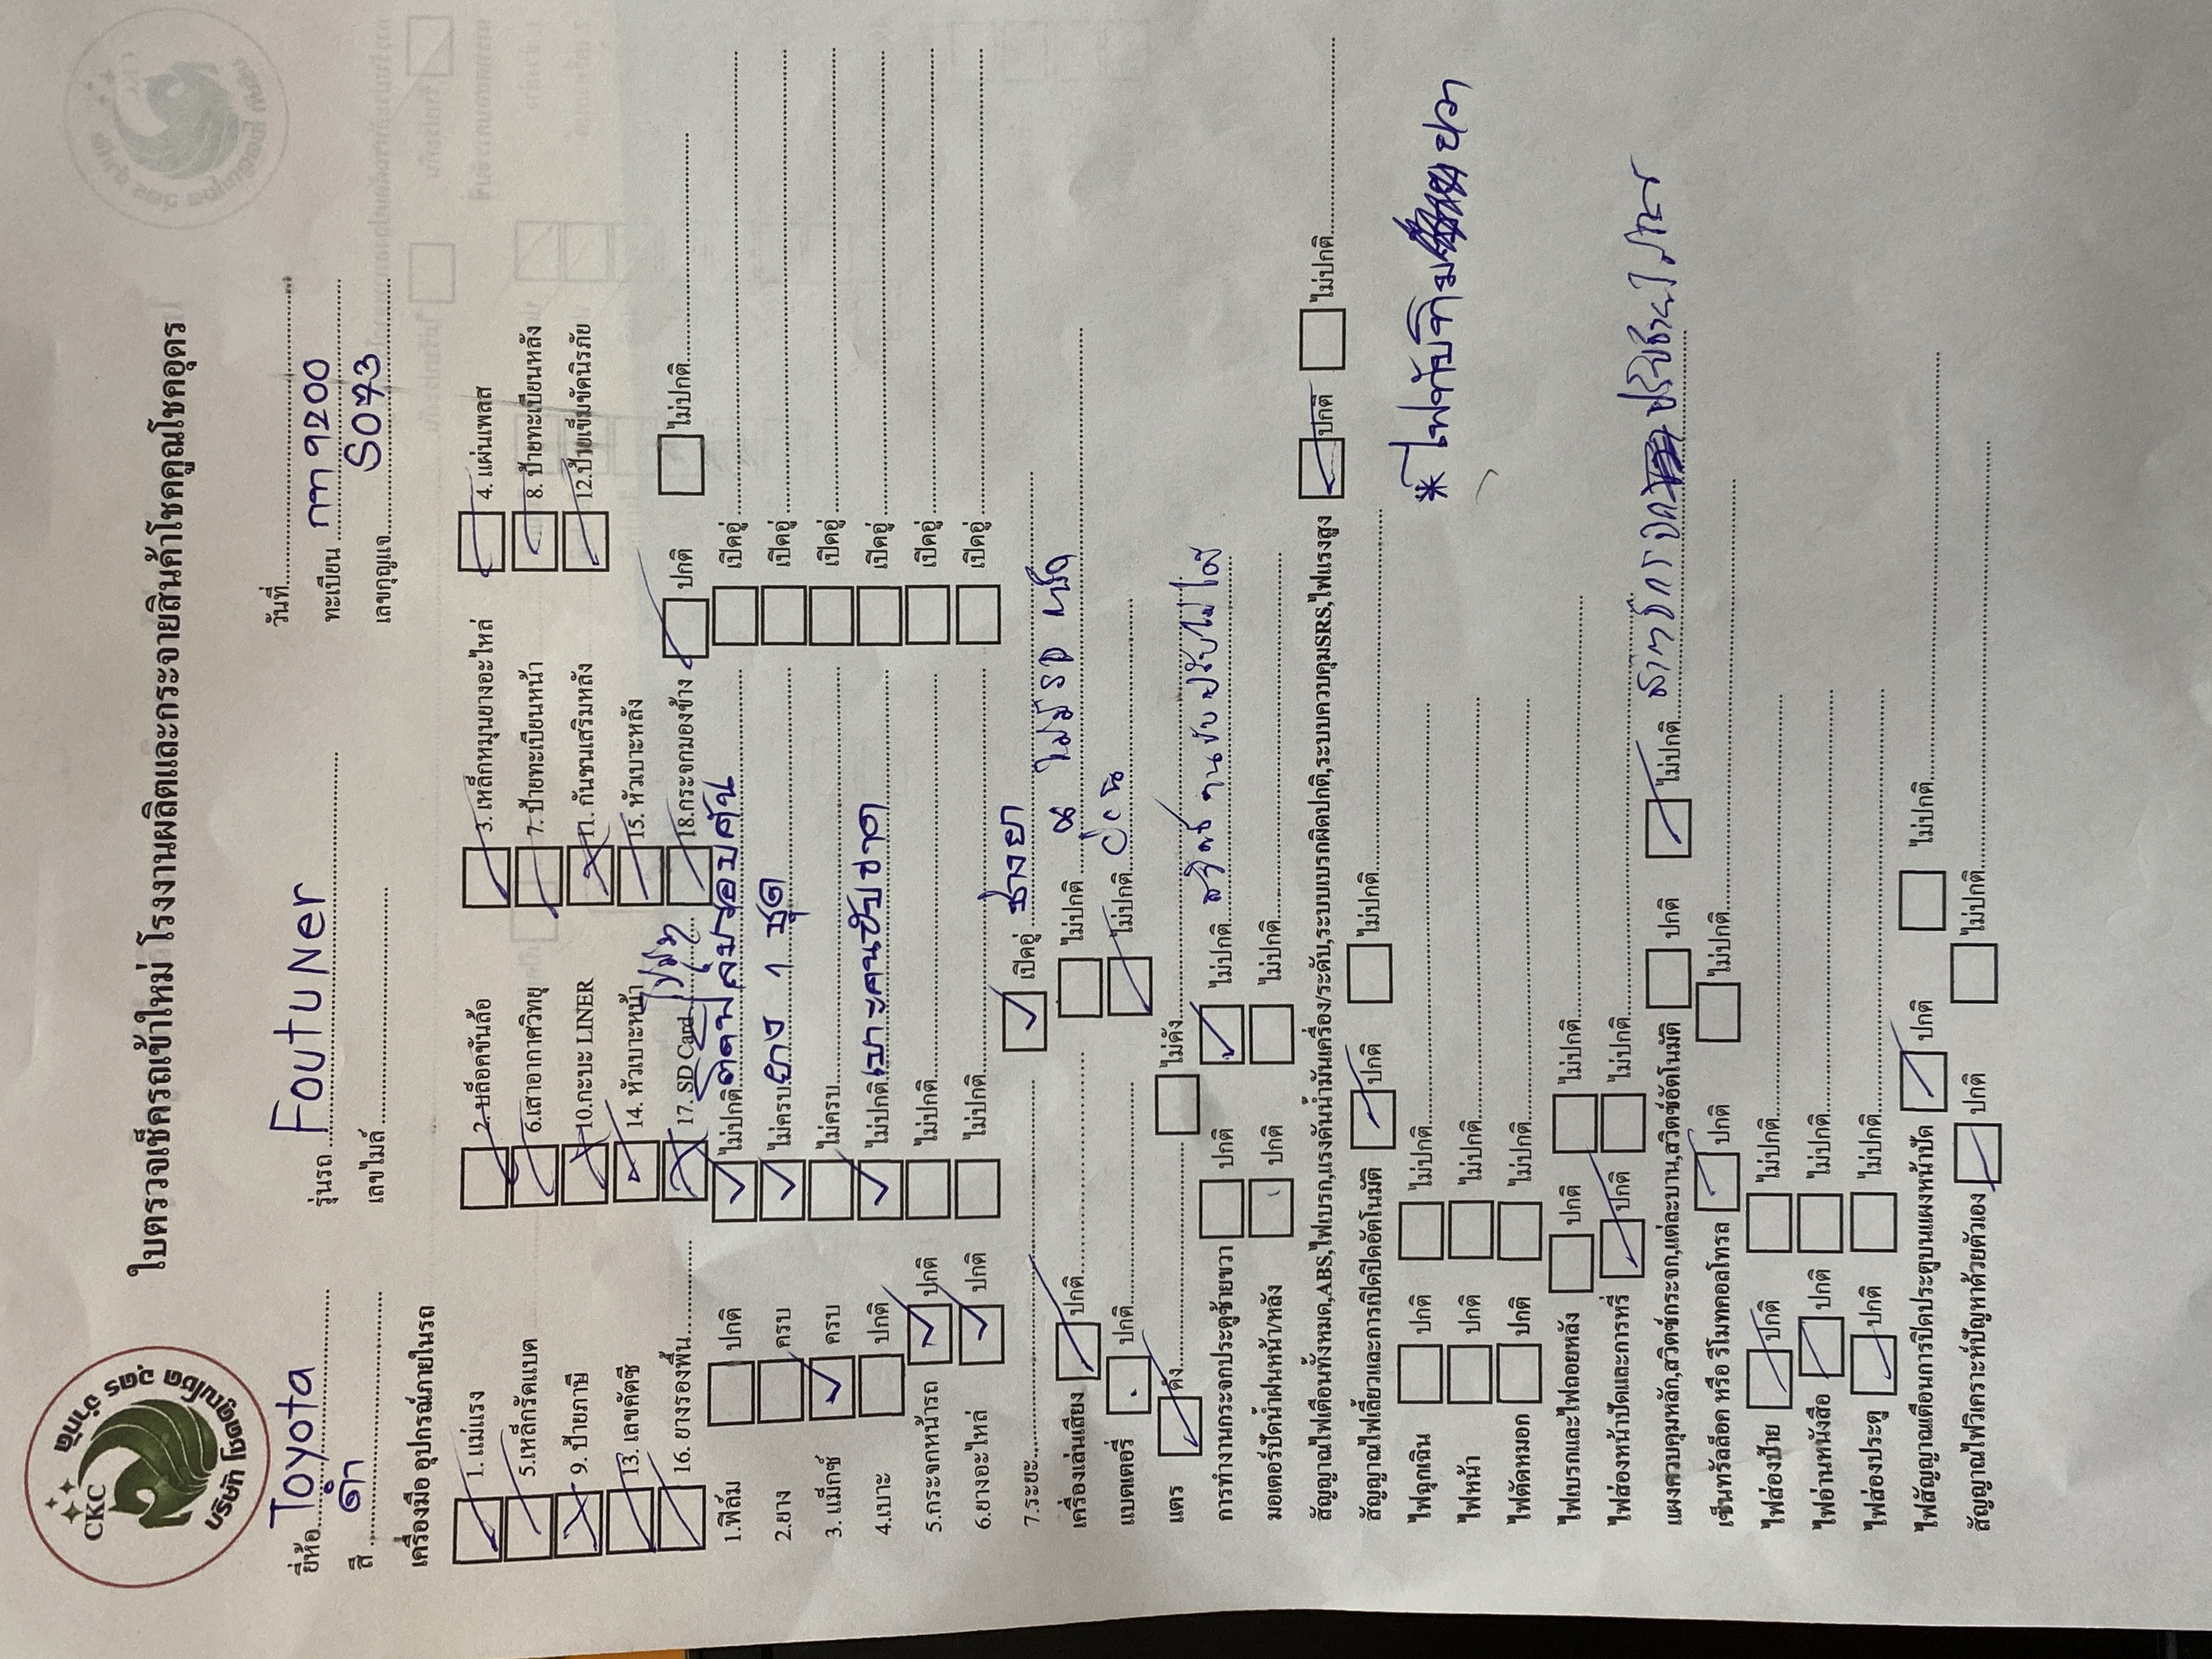 บริษัท โชคคูณโชค อุดร จำกัด
CKC
ใบตรวจเช็ครถเข้าใหม่ โรงงานผลิตและกระจายสินค้าโชคคูณโชคอุดร
ยี่ห้อ Toyota รุ่นรถ FoutuNer วันที่
สี ดำ เลขไมล์ ทะเบียน กก 9200
เลขกุญแจ S073
เครื่องมือ อุปกรณ์ภายในรถ
1. แม่แรง 2. บล็อคขันล้อ 3. เหล็กหมุนยางอะไหล่ 4. แผ่นเพลส
5.เหล็กรัดแบต 6.เสาอากาศวิทยุ 7. ป้ายทะเบียนหน้า 8. ป้ายทะเบียนหลัง
9. ป้ายภาษี 10.กะบะ LINER 11. กันชนเสริมหลัง 12.ป้ายเข็มขัดนิรภัย
13. เลขคัตซี 14. หัวเบาะหน้า 15. หัวเบาะหลัง
16. ยางรองพื้น 17. SD Card ไม่มี 18.กระจกมองข้าง ปกติ ไม่ปกติ
1.ฟิล์ม ปกติ ไม่ปกติ ติดฟิล์มรอบคัน เบิคอู่
2.ยาง ครบ ไม่ครบ ยาง 1 ชุด เบิคอู่
3. แม็กซ์ ครบ ไม่ครบ เบิคอู่
4.เบาะ ปกติ ไม่ปกติ เบาะคนขับขาด เบิคอู่
5.กระจกหน้ารถ ปกติ ไม่ปกติ เบิคอู่
6.ยางอะไหล่ ปกติ ไม่ปกติ เบิคอู่
7.ระยะ เบิคอู่ ช่างยา
เครื่องเล่นเสียง ปกติ ไม่ปกติ
แบตเตอรี่ ปกติ ไม่ปกติ
แตร ดัง ไม่ดัง
การทำงานกระจกประตูซ้ายขวา ปกติ ไม่ปกติ
มอเตอร์ปัดน้ำฝนหน้า/หลัง ปกติ ไม่ปกติ
สัญญาณไฟเตือนทั้งหมด,ABS,ไฟเบรก,แรงดันน้ำมันเครื่อง/ระดับ,ระบบเบรกผิดปกติ,ระบบควบคุมSRS,ไฟแรงสูง ปกติ ไม่ปกติ
สัญญาณไฟเลี้ยวและการเปิดปิดอัตโนมัติ ปกติ ไม่ปกติ
ไฟฉุกเฉิน ปกติ ไม่ปกติ
* ไฟทับทิม ขวา
ไฟหน้า ปกติ ไม่ปกติ
ไฟตัดหมอก ปกติ ไม่ปกติ
ไฟเบรกและไฟถอยหลัง ปกติ ไม่ปกติ
ไฟส่องหน้าปัดและการหรี่ ปกติ ไม่ปกติ
แผงควบคุมหลัก,สวิตซ์กระจก,แต่ละบาน,สวิตซ์อัตโนมัติ ปกติ ไม่ปกติ
เซ็นทรัลล็อค หรือ รีโมทคอลโทรล ปกติ ไม่ปกติ
ไฟส่องป้าย ปกติ ไม่ปกติ
ไฟอ่านหนังสือ ปกติ ไม่ปกติ
ไฟส่องประตู ปกติ ไม่ปกติ
ไฟสัญญาณเตือนการปิดประตูบนแผงหน้าปัด ปกติ ไม่ปกติ
สัญญาณไฟวิเคราะห์ปัญหาด้วยตัวเอง ปกติ ไม่ปกติ